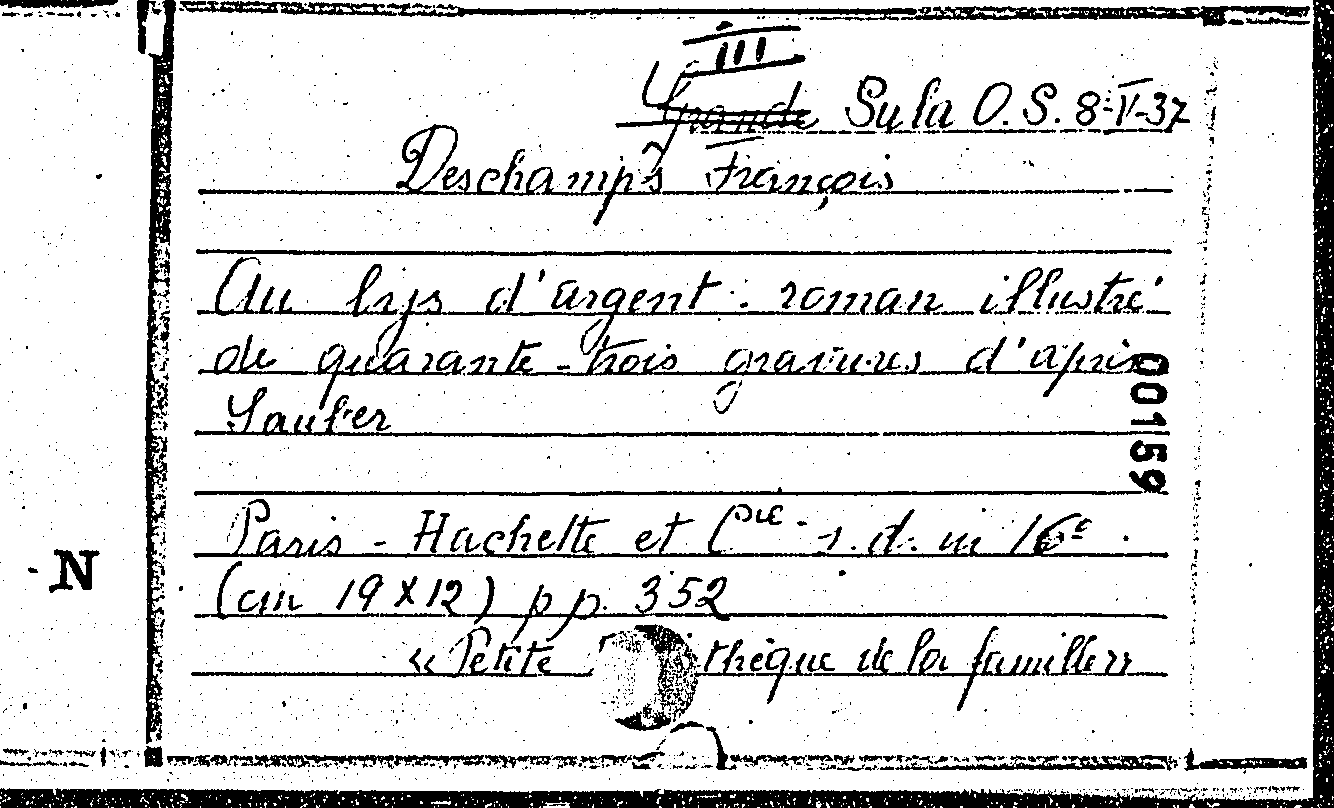 III
Grande Sula O.S. 8-V-37
Deschamps François
Au lys d'argent. roman illustré
de quarante-trois gravures d'après
00159
Paris - Hachette et Cie - s.d. in 16º.
(cm 19 X 12) pp. 352
N
« Petite thèque de la famille »